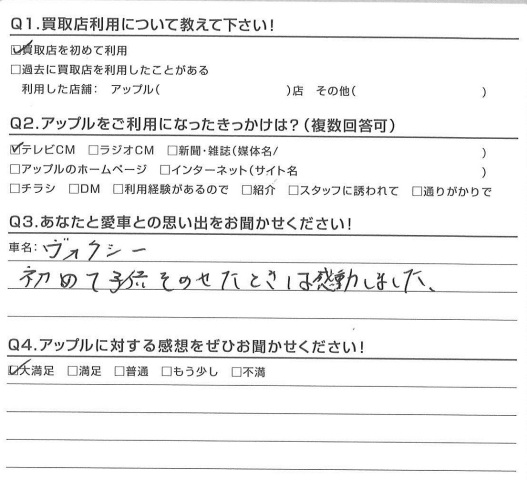 Q1.買取店利用について教えて下さい!
☑買取店を初めて利用
□過去に買取店を利用したことがある
利用した店舗: アップル( )店 その他( )
Q2.アップルをご利用になったきっかけは?(複数回答可)
☑テレビCM □ラジオCM □新聞・雑誌(媒体名/ )
□アップルのホームページ □インターネット(サイト名 )
□チラシ □DM □利用経験があるので □紹介 □スタッフに誘われて □通りがかりで
Q3.あなたと愛車との思い出をお聞かせください!
車名: ヴォクシー
初めて子供をのせたときは感動しました、
Q4.アップルに対する感想をぜひお聞かせください!
☑大満足 □満足 □普通 □もう少し □不満